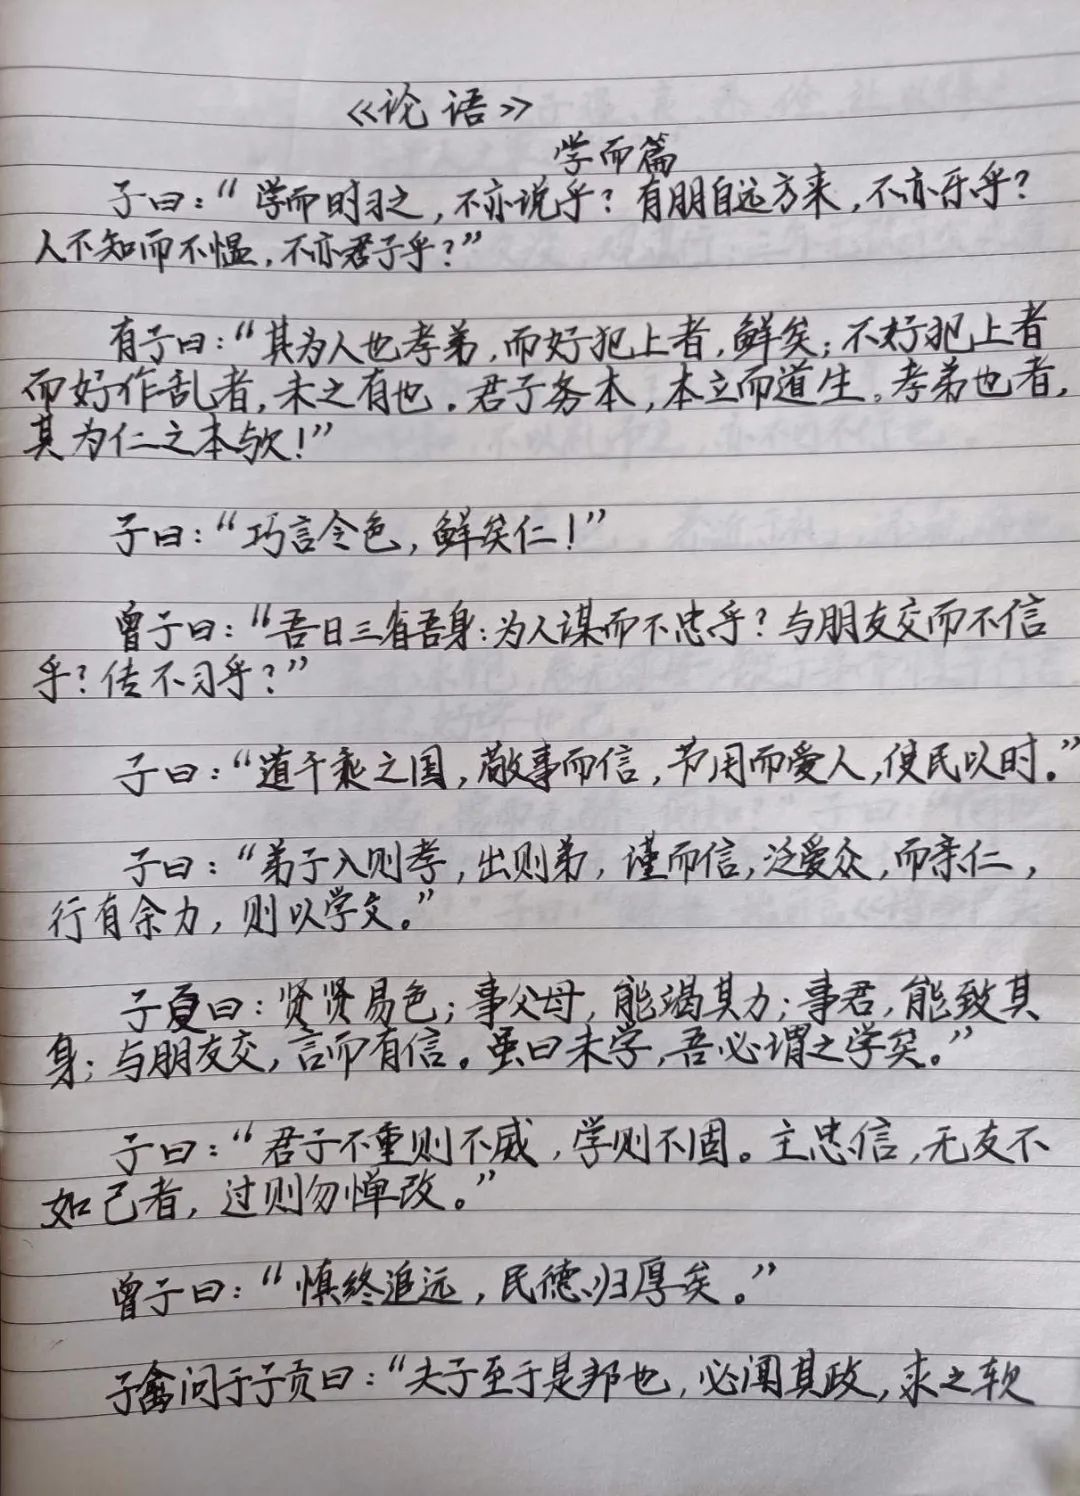 《论语》
学而篇
子曰：“学而时习之，不亦说乎？有朋自远方来，不亦乐乎？
人不知而不愠，不亦君子乎？”
有子曰：“其为人也孝弟，而好犯上者，鲜矣；不好犯上者
而好作乱者，未之有也。君子务本，本立而道生。孝弟也者，
其为仁之本欤！”
子曰：“巧言令色，鲜矣仁！”
曾子曰：“吾日三省吾身：为人谋而不忠乎？与朋友交而不信
乎？传不习乎？”
子曰：“道千乘之国，敬事而信，节用而爱人，使民以时。”
子曰：“弟子入则孝，出则弟，谨而信，泛爱众，而亲仁，
行有余力，则以学文。”
子夏曰：贤贤易色；事父母，能竭其力；事君，能致其
身；与朋友交，言而有信。虽曰未学，吾必谓之学矣。”
子曰：“君子不重则不威，学则不固。主忠信，无友不
如己者，过则勿惮改。”
曾子曰：“慎终追远，民德归厚矣。”
子禽问于子贡曰：“夫子至于是邦也，必闻其政，求之